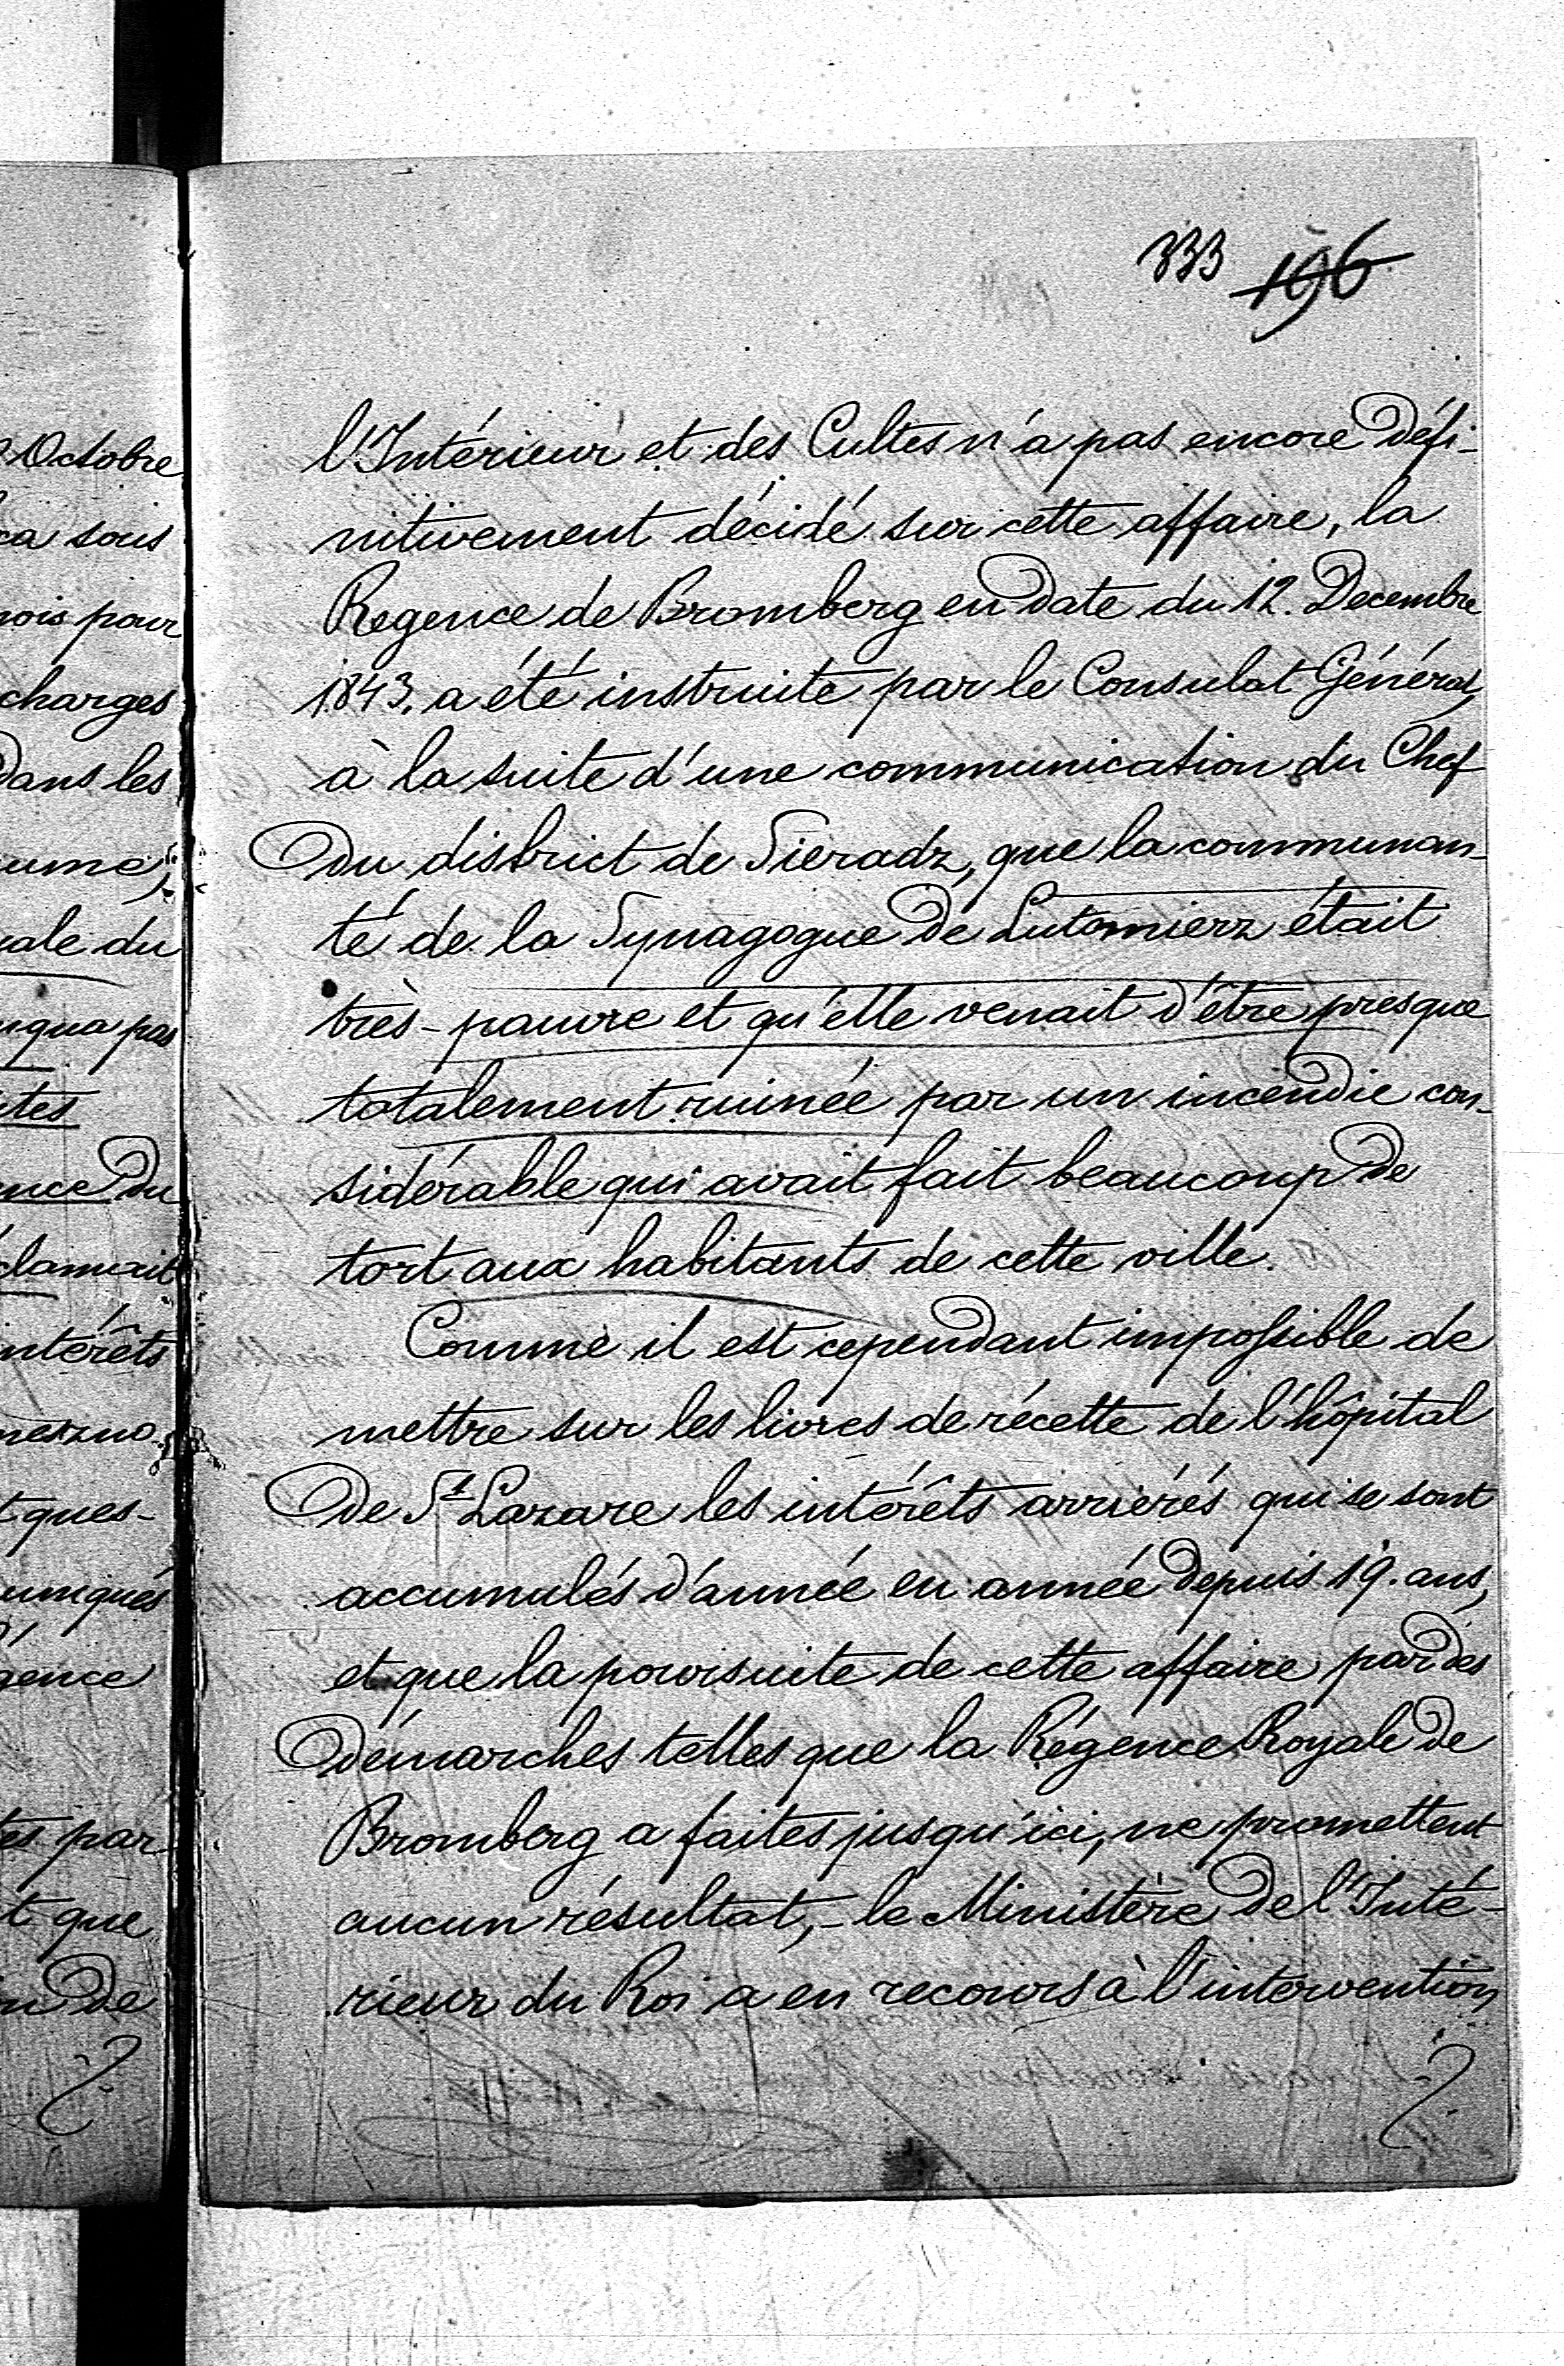 333 196
l'Intérieur et des Cultes n'a pas encore défi-
nitivement décidé sur cette affaire, la
Regence de Bromberg en date du 12. Decembre
1843. a été instruite par le Consulat Général,
à la suite d'une communication du Chef
du district de Sieradz, que la communau-
té de la Synagogue de Lutomierz était
très-pauvre et qu'elle venait d'être presque
totalement ruinée par un incendie con-
sidérable qui avait fait beaucoup de
tort aux habitants de cette ville.
Comme il est cependant impossible de
mettre sur les livres de récette de l'hôpital
de St Lazare les intérêts arriérés qui se sont
accumulés d'année en année depuis 19. ans,
et que la poursuite de cette affaire par des
démarches telles que la Régence Royale de
Bromberg a faites jusqu'ici, ne promettent
aucun résultat, - le Ministère de l'Inté-
rieur du Roi a eu recours à l'intervention
Octobre
sous
pour
charges
dans les
ale du
pas
du
intérêts
ques-
par
que
de